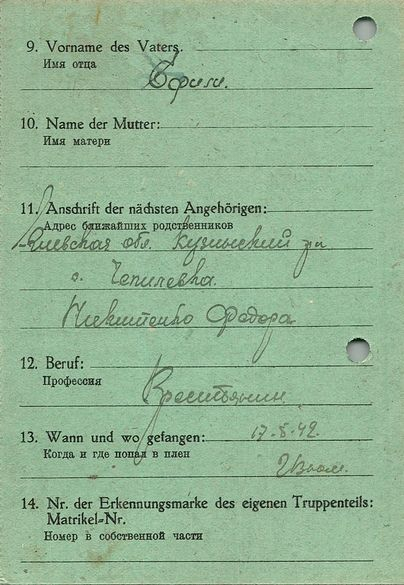 9. Vorname des Vaters.
Имя отца
Ефим.
10. Name der Mutter:
Имя матери
11. Anschrift der nächsten Angehörigen:
Адрес ближайших родственников
Киевская обл. р-н
с. Чепилевка
Никитенко Федора
12. Beruf:
Профессия
Крестьянин
13. Wann und wo gefangen: 17-5-42.
Когда и где попал в плен
14. Nr. der Erkennungsmarke des eigenen Truppenteils:
Matrikel-Nr.
Номер в собственной части